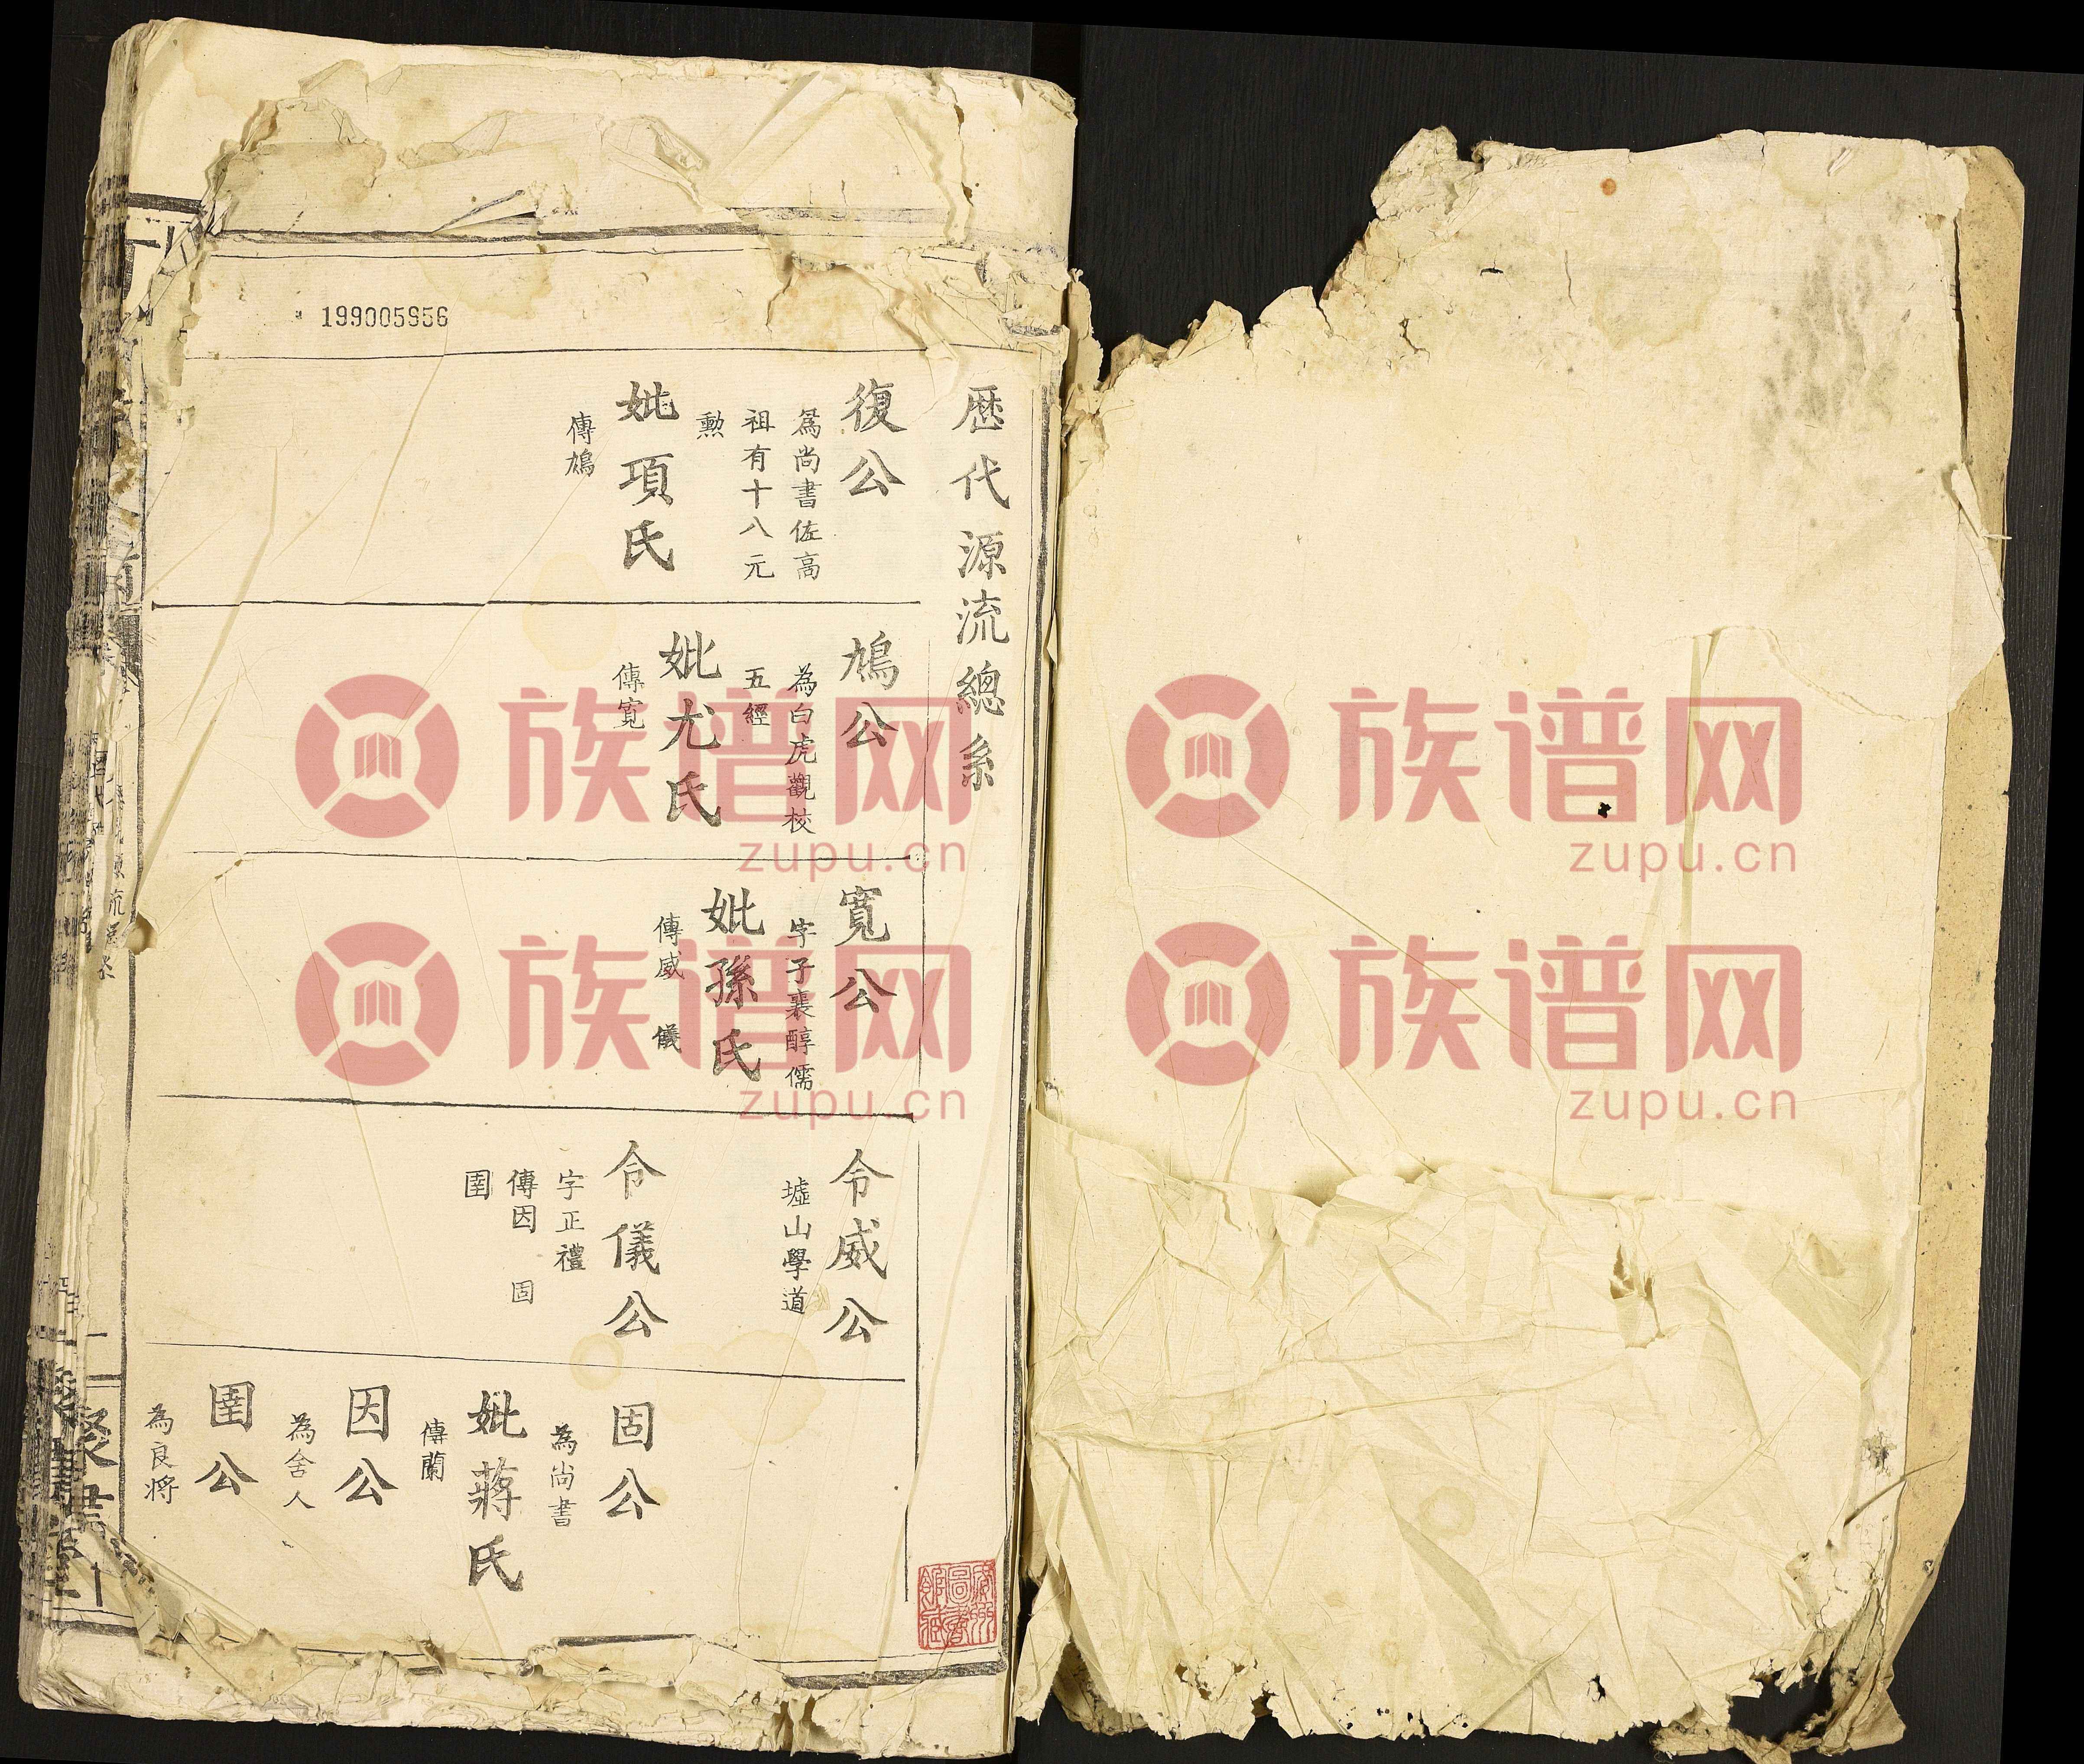 歴代源流總系
復公
爲尚書佐高
祖有十八元
勲
妣項氏
傳鳩
鳩公
為白虎觀校
五經
妣尤氏
傳寛
寬公
字子襄醇儒
妣孫氏
傳威 儀
令威公
墟山學道
令儀公
字正禮
傳因 固
圉
固公
為尚書
妣蔣氏
傳蘭
因公
為舍人
圉公
為良將
199005956
族谱网
zupu.cn
族谱网
zupu.cn
族谱网
zupu.cn
族谱网
zupu.cn